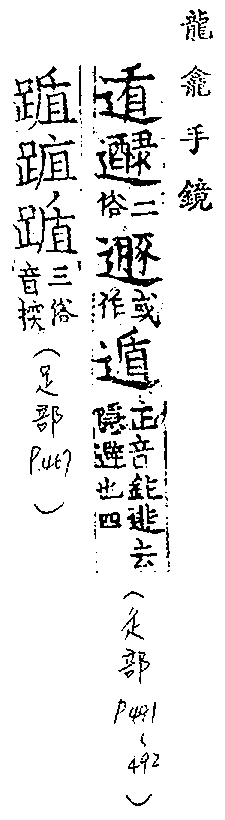 龍龕手鏡
二俗遯或作遁正音鈍逃去隱避也四（辵部P.491~492）
踲三俗音揬（足部P.467）